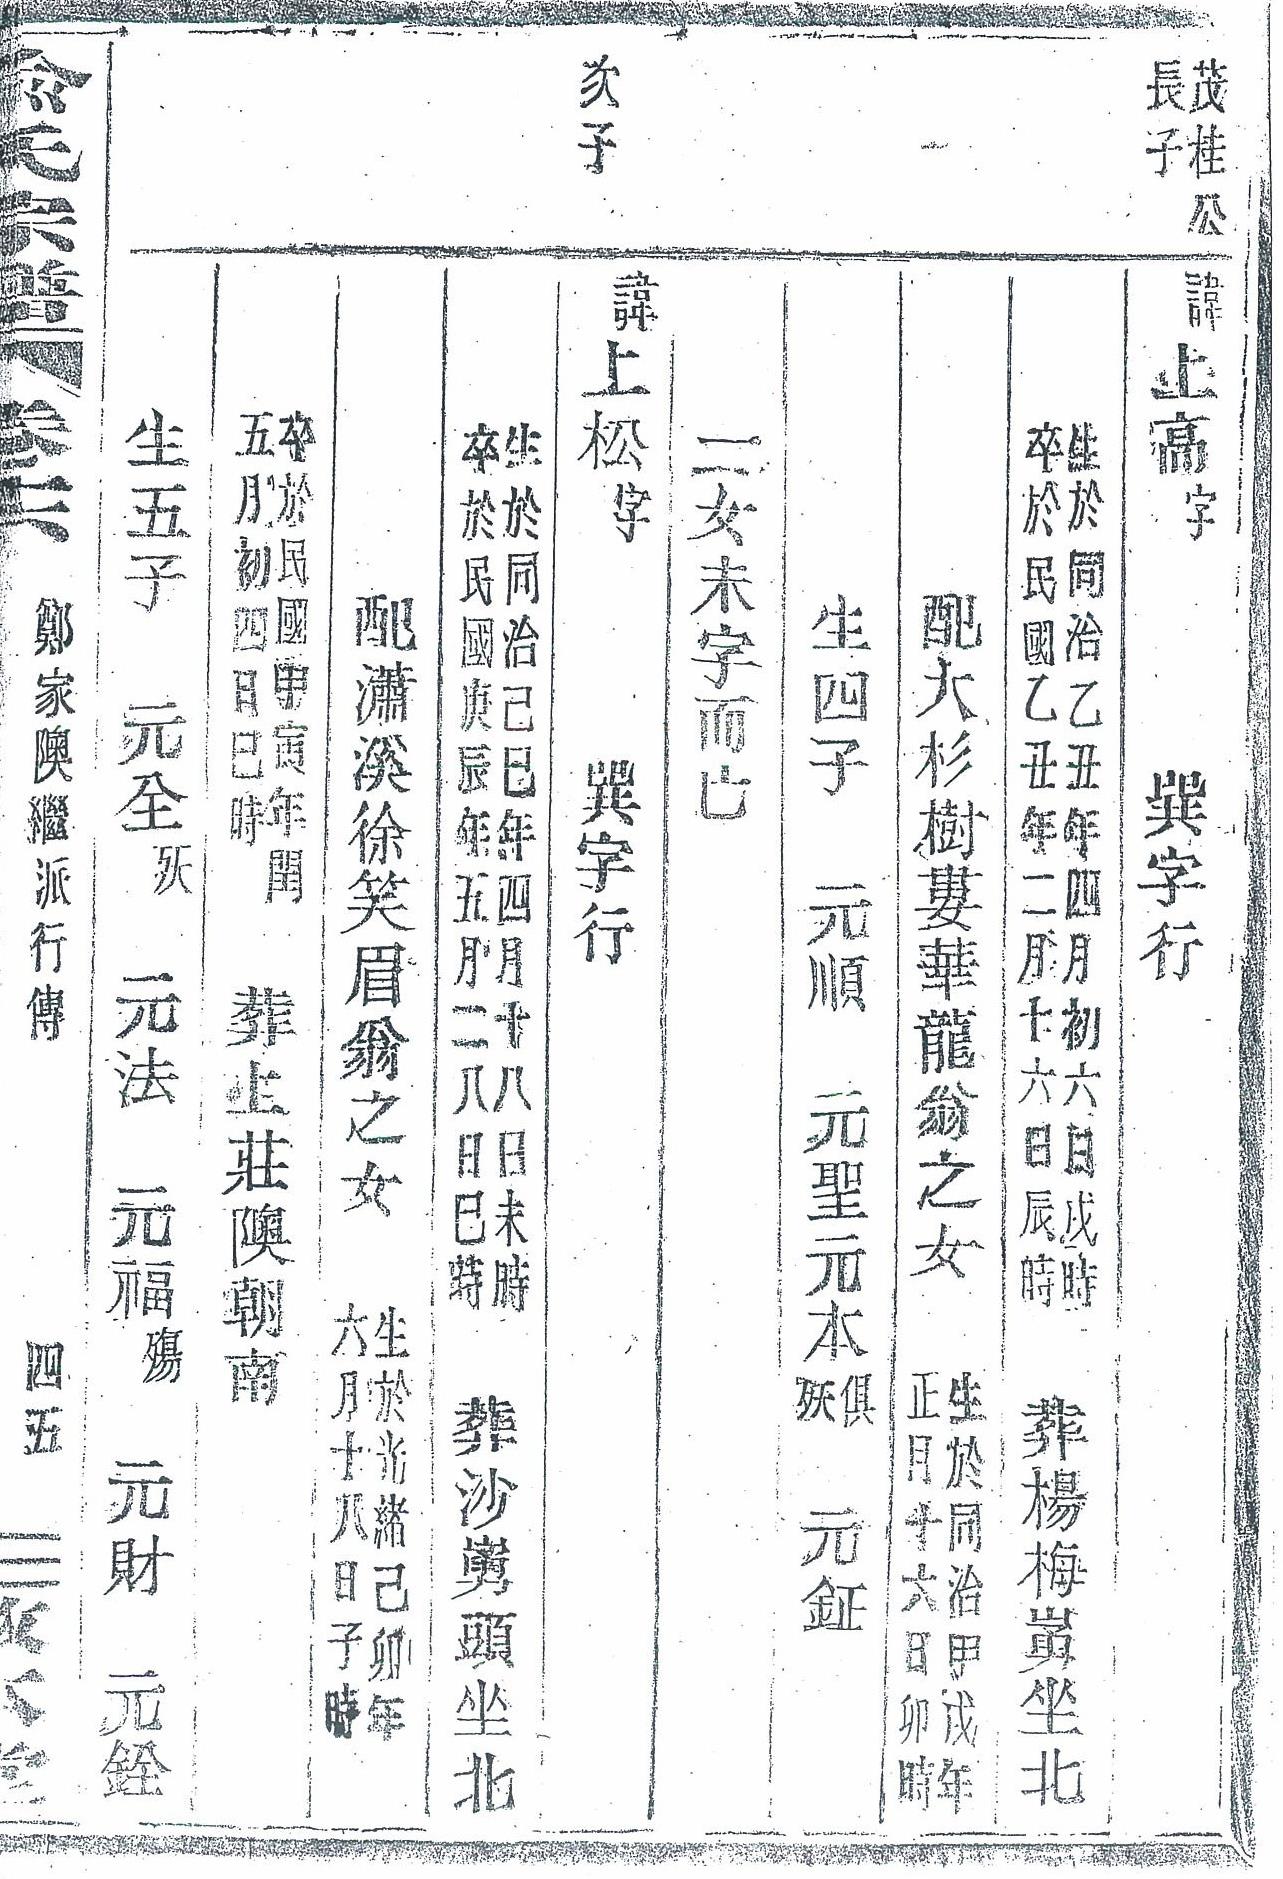 茂桂公
長子
諱上高字 巽字行
生於同治乙丑年四月初六日戌時
卒於民國乙丑年二月十六日辰時
葬楊梅嶴坐北
配大杉樹婁華龍翁之女
生於同治甲戌年
正月十六日卯時
生四子 元順 元聖元本俱殀 元鉦
二女未字而亡
次子
諱上松字 巽字行
生於同治己巳年四月十八日未時
卒於民國庚辰年五月二八日巳時
葬沙嶴頭坐北
配瀟溪徐笑眉翁之女
生於光緒己卯年
六月十八日子時
卒於民國甲寅年閏
五月初四日巳時
葬上莊隩朝南
生五子 元全殀 元法 元福殤 元財 元銓
俞氏宗譜 卷六 鄭家隩繼派行傳 四五